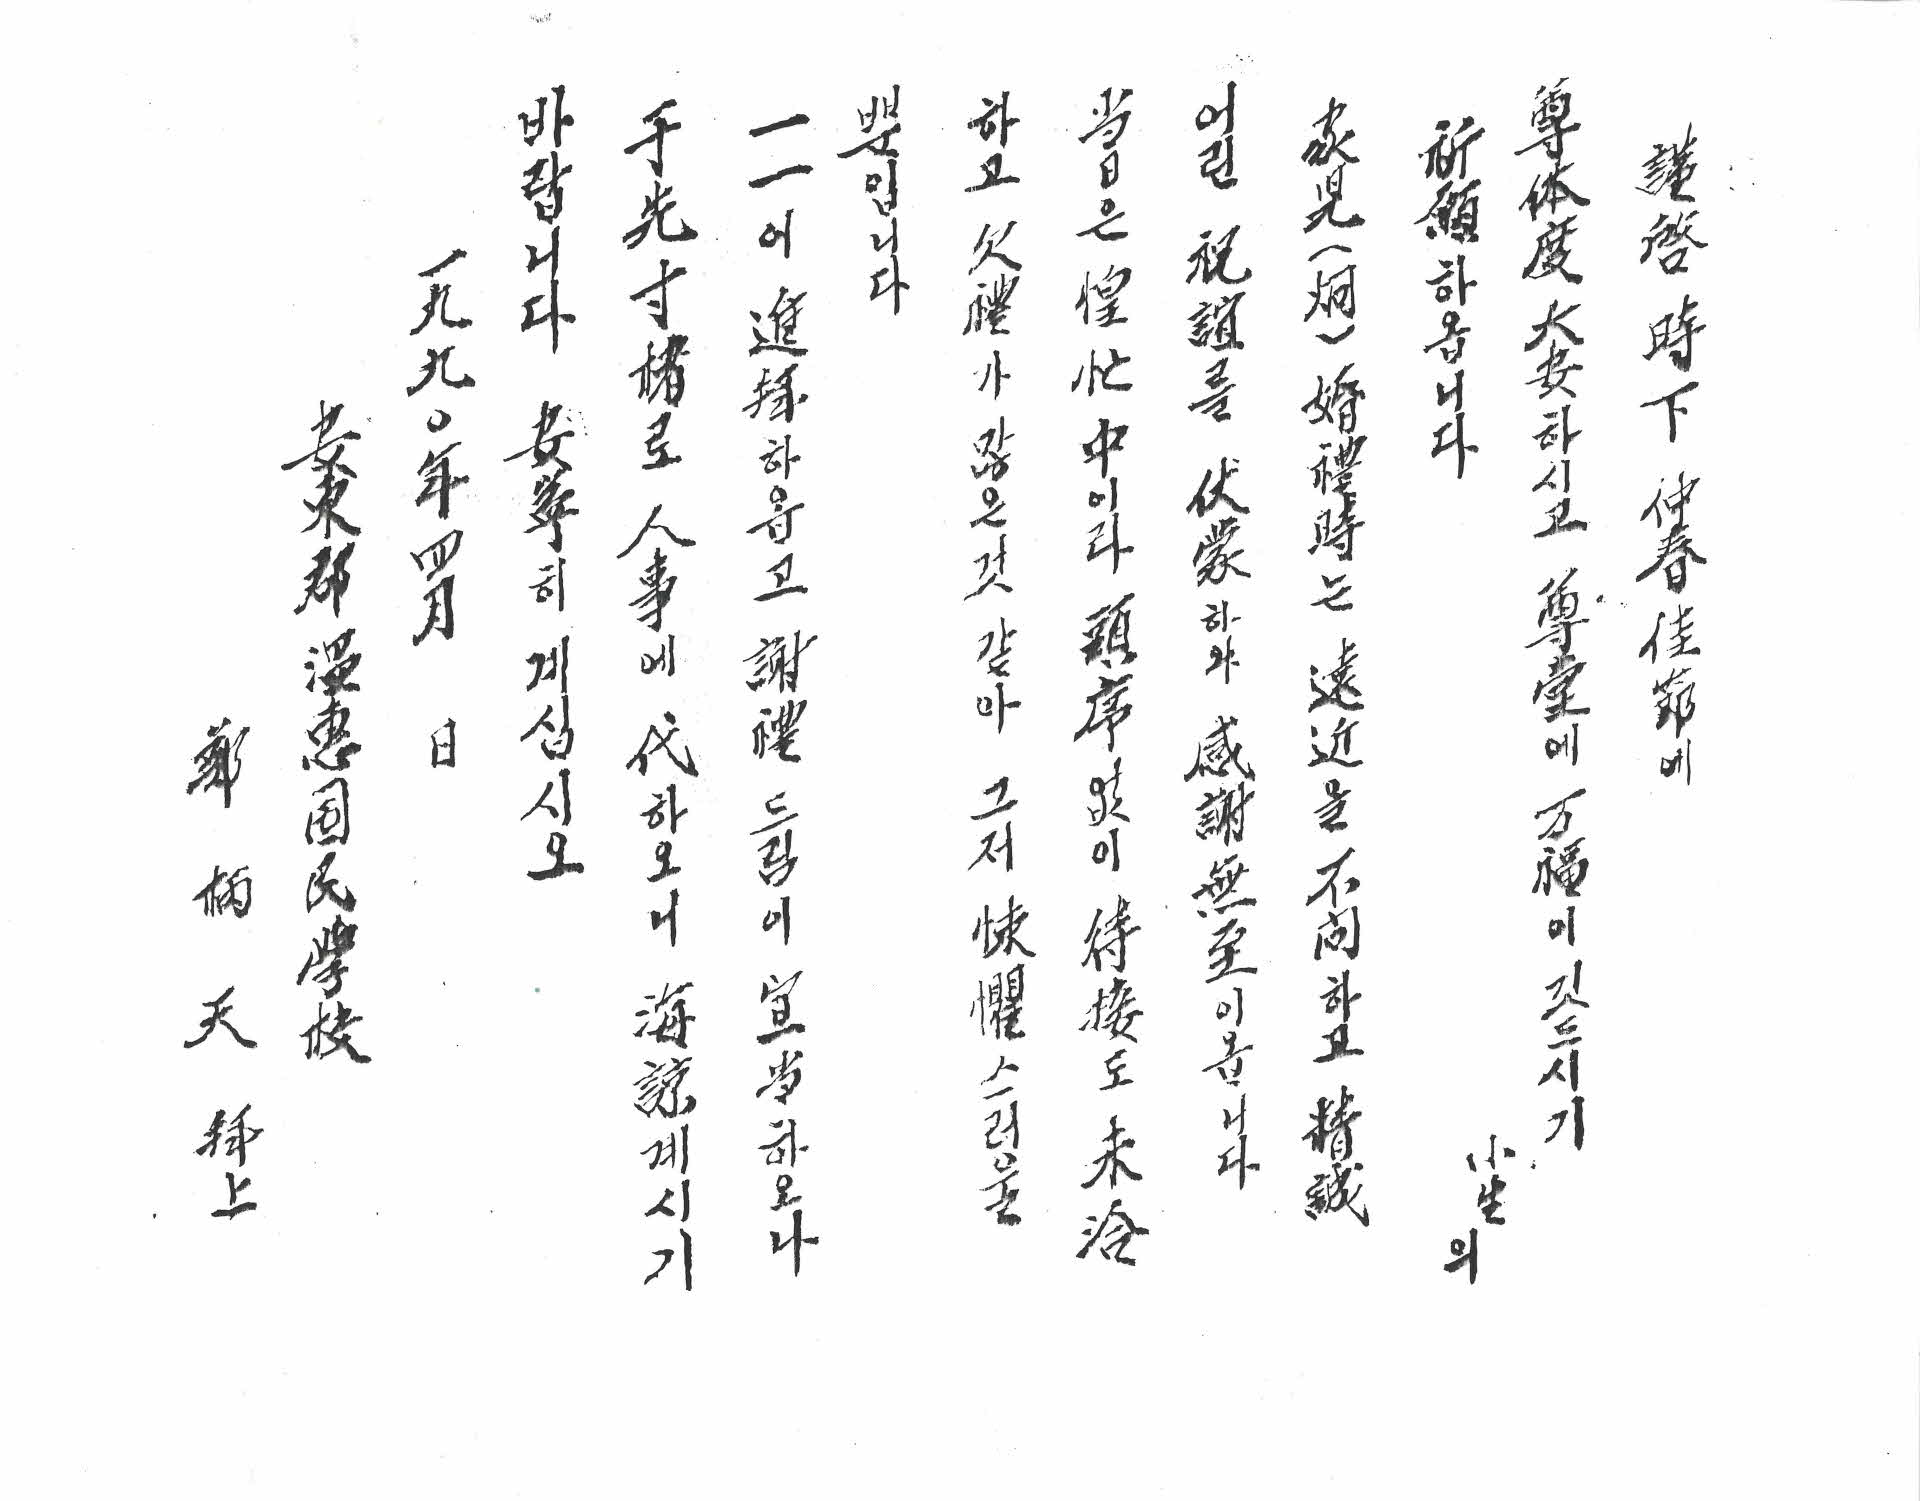 謹啓 時下 仲春佳節에
尊体度 大安하시고 尊堂에 万福이 깃드시기
祈願하옵니다
小生의
家兒(炯) 婚禮時는 遠近을 不問하고 精誠
어린 祝誼를 伏蒙하와 感謝無至이옵니다
当日은 惶忙中이라 頭序없이 待接도 未洽
하고 欠禮가 많은것 같아 그저 悚懼스러울
뿐입니다
一一이 進拜하옵고 謝禮 드림이 宜当하오나
于先 寸楮로 人事에 代하오니 海諒계시기
바랍니다 安寧히 계십시오
一九九０年 四月 日
安東郡 溫惠國民學校
鄭 柄 天 拜上